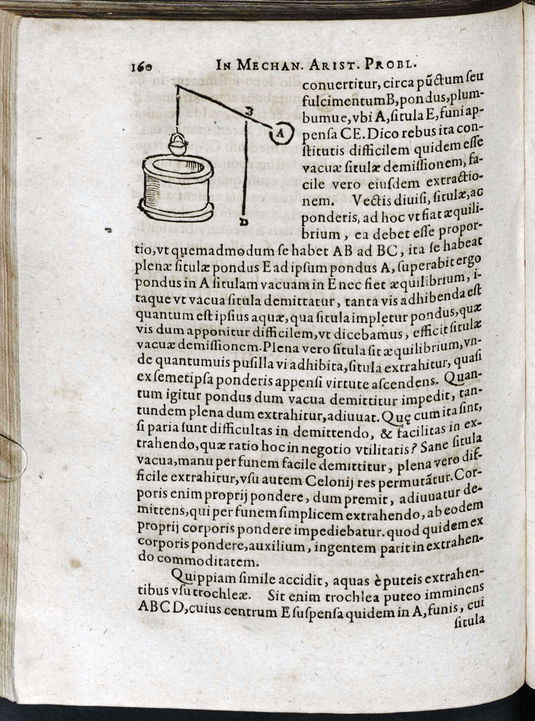 160
IN MECHAN. ARIST. PROBL.
conuertitur, circa pũctum ſeu
fulcimentum B, pondus, plum-
bumue, vbi A, ſitula E, funi ap-
penſa CE. Dico rebus ita con-
ſtitutis difficilem quidem eſſe
vacuæ ſitulæ demiſſionem, fa-
cile vero eiuſdem extractio-
nem. Vectis diuiſi, ſitulæ, ac
ponderis, ad hoc vt fiat æquili-
brium, ea debet eſſe propor-
B
A
D
tio, vt quemadmodum ſe habet AB ad BC, ita ſe habeat
plenæ ſitulæ pondus E ad ipſum pondus A, ſuperabit ergo
pondus in A ſitulam vacuam in E nec fiet æquilibrium, i-
taque vt vacua ſitula demittatur, tanta vis adhibenda eſt
quantum eſt ipſius aquæ, qua ſitula impletur pondus, quæ
vis dum apponitur difficilem, vt dicebamus, efficit ſitulæ
vacuæ demiſſionem. Plena vero ſitula fit æquilibrium, vn-
de quantumuis puſilla vi adhibita, ſitula extrahitur, quaſi
ex ſemetipſa ponderis appenſi virtute aſcendens. Quan-
tum igitur pondus dum vacua demittitur impedit, tan-
tundem plena dum extrahitur, adiuuat. Quę cum ita ſint,
ſi paria ſunt difficultas in demittendo, & facilitas in ex-
trahendo, quæ ratio hoc in negotio vtilitatis? Sane ſitula
vacua, manu per funem facile demittitur, plena vero dif-
ficile extrahitur, vſu autem Celonij res permutãtur. Cor-
poris enim proprij pondere, dum premit, adiuuatur de-
mittens, qui per funem ſimplicem extrahendo, ab eodem
proprij corporis pondere impediebatur. quod quidem ex
corporis pondere, auxilium, ingentem parit in extrahen-
do commoditatem.
Quippiam ſimile accidit, aquas è puteis extrahen-
tibus vſu trochleæ. Sit enim trochlea puteo imminens
ABCD, cuius centrum E ſuſpenſa quidem in A, funis, cui
ſitula